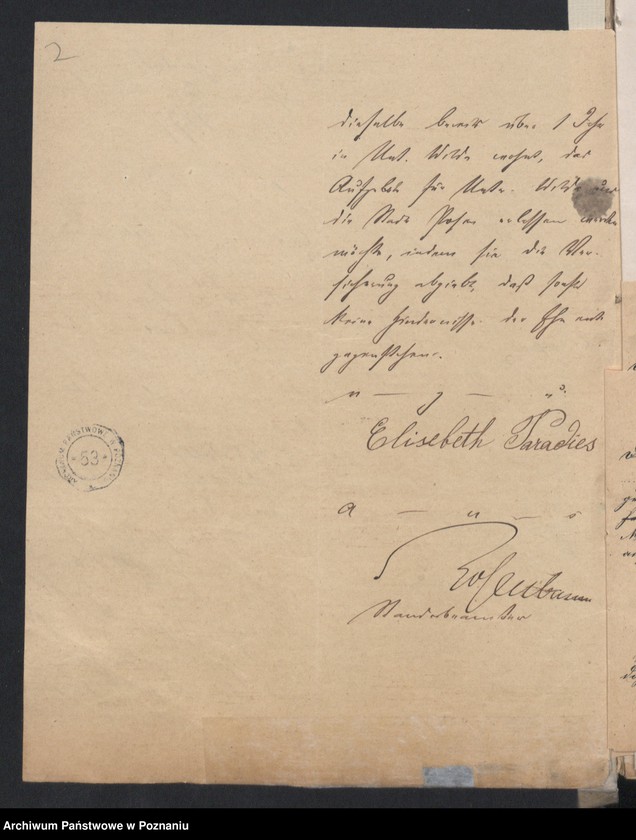 2
dieselbe bereits über 1 Jahr
in Unt. Wilda wohnt, das
Aufgebot für Unter Wilda und
die Stadt Posen erlassen werden
möchte, indem sie die Ver-
sicherung abgiebt, daß sonst
keine Hindernisse der Ehe ent
gegenstehen.
v. — g. — u.
Elisebeth Paradies
a — u — s
Standesbeamter
ARCHIWUM PAŃSTWOWE W POZNANIU
* 53 *
Archiwum Państwowe w Poznaniu